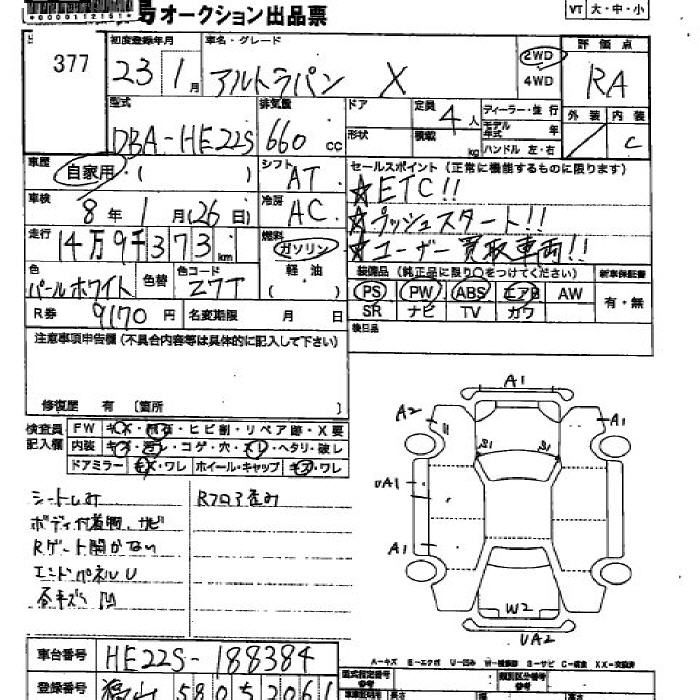 オークション出品票
VT 大・中・小
*0000112151*
377
初度登録年月
23 1月
車名・グレード
アルトラパン X
2WD
4WD
評価点
RA
型式
DBA-HE22S
排気量
660 cc
ドア
形状
定員 4人
積載 kg
ディーラー・並行
モデル年式 年
ハンドル 左・右
外装 内装
C
車歴
自家用 ( )
シフト
AT
セールスポイント(正常に機能するものに限ります)
☆ETC!!
☆プッシュスタート!!
★ユーザー買取車両!!
車検
8年1月(26日)
冷房
AC
走行
14万9千373km
燃料
ガソリン
軽油
( )
色
パールホワイト
色替
色コード
Z7T
装備品(純正品に限り○をつけてください)
新車保証書
PS PW ABS エアB AW
SR ナビ TV カワ
有・無
R券 9170円
名変期限 月 日
後日品
注意事項申告欄(不具合内容等は具体的に記入して下さい)
修復歴 有 〔箇所 〕
検査員記入欄
FW キズ・飛石・ヒビ割・リペア跡・X要
内装 キズ・汚レ・コゲ・穴・スレ・ヘタリ・破レ
ドアミラー キズ・ワレ ホイール・キャップ キズ・ワレ
ボディ付着物、サビ
Rゲート開かない
エンドパネルU
Rフロア歪み
A1
A2
A1
S1
S1
UA1
A1
W2
UA2
車台番号 HE22S-188384
登録番号 福山 580 う 2061
A-キズ E-エクボ U-凹み W-補修跡 S-サビ C-腐食 XX-交換済
型式指定番号
類別区分番号